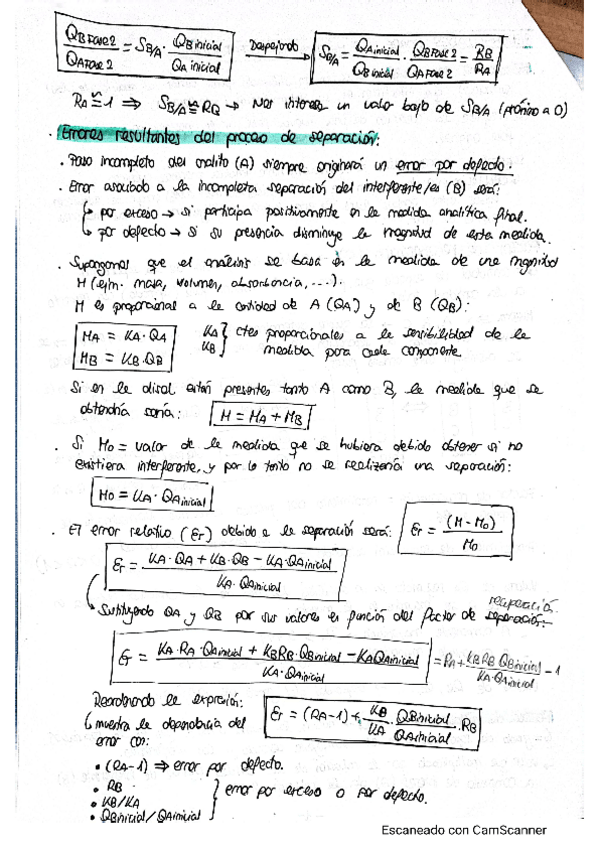 QB Fase 2 / QA Fase 2 = SB/A · QB inicial / QA inicial Despejando → SB/A = QA inicial / QB inicial · QB Fase 2 / QA Fase 2 = RB / RA
RA ≅ 1 ⇒ SB/A ≅ RB → Nos interesa un valor bajo de SB/A (próximo a 0)
· Errores resultantes del proceso de separación:
· Paso incompleto del analito (A) siempre originará un error por defecto.
· Error asociado a la incompleta separación del interferente/es (B) será:
↳ por exceso → si participa positivamente en la medida analítica final.
↳ por defecto → si su presencia disminuye la magnitud de esta medida.
· Supongamos que el análisis se basa en la medida de una magnitud
M (ejm. masa, volumen, absorbancia, ...).
M es proporcional a la cantidad de A (QA) y de B (QB):
MA = KA · QA
MB = KB · QB
KA KB } ctes proporcionales a la sensibilidad de la
medida para cada componente.
Si en la disol. están presentes tanto A como B, la medida que se
obtendría sería: M = MA + MB
· Si Mo = valor de la medida que se hubiera debido obtener si no
existiera interferente, y por lo tanto no se realizaría una separación:
Mo = KA · QA inicial
· El error relativo (Er) debido a la separación será: Er = (M - Mo) / Mo
Er = KA · QA + KB · QB - KA · QA inicial / KA · QA inicial
recuperación.
↳ Sustituyendo QA y QB por sus valores en función del factor de separación:
Er = KA · RA · QA inicial + KB RB · QB inicial - KA QA inicial / KA · QA inicial = RA + KB RB QB inicial / KA · QA inicial - 1
Reordenando la expresión: Er = (RA - 1) + KB / KA · QB inicial / QA inicial · RB
↳ muestra la dependencia del
error con:
• (RA - 1) ⇒ error por defecto.
• RB
• KB/KA } error por exceso o por defecto.
• QB inicial / QA inicial
Escaneado con CamScanner